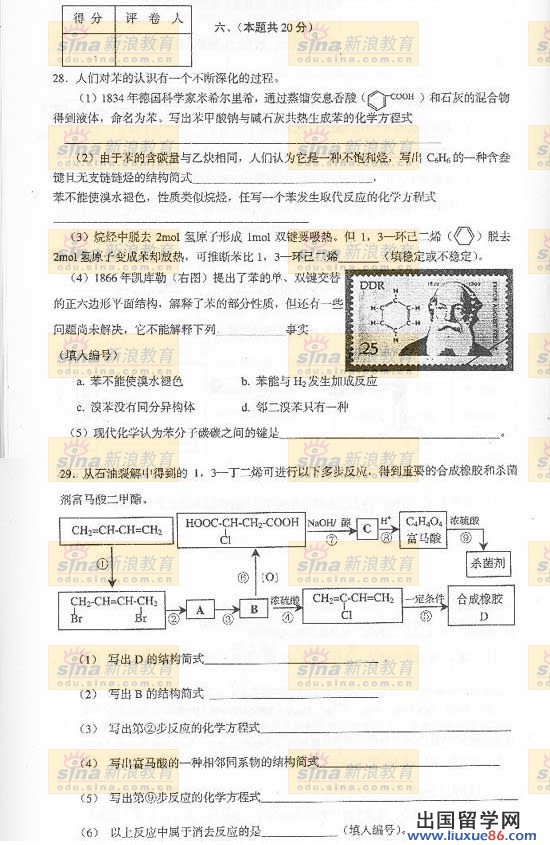 得分 评卷人
六、(本题共20分)
28．人们对苯的认识有一个不断深化的过程。
(1)1834年德国科学家米希尔里希，通过蒸馏安息香酸(COOH)和石灰的混合物
得到液体，命名为苯。写出苯甲酸钠与碱石灰共热生成苯的化学方程式
(2)由于苯的含碳量与乙炔相同，人们认为它是一种不饱和烃，写出C₆H₆的一种含叁
键且无支链链烃的结构简式________________，
苯不能使溴水褪色，性质类似烷烃，任写一个苯发生取代反应的化学方程式
(3)烷烃中脱去2mol氢原子形成1mol双键要吸热。但1，3—环己二烯()脱去
2mol氢原子变成苯却放热，可推断苯比1，3—环己二烯______(填稳定或不稳定)。
(4)1866年凯库勒(右图)提出了苯的单、双键交替
的正六边形平面结构，解释了苯的部分性质，但还有一些
问题尚未解决，它不能解释下列__________事实
(填入编号)
a. 苯不能使溴水褪色 b. 苯能与H₂发生加成反应
c. 溴苯没有同分异构体 d. 邻二溴苯只有一种
DDR
25
(5)现代化学认为苯分子碳碳之间的键是________________。
29．从石油裂解中得到的1，3—丁二烯可进行以下多步反应，得到重要的合成橡胶和杀菌
剂富马酸二甲酯。
CH₂=CH-CH=CH₂ HOOC-CH-CH₂-COOH NaOH/醇 C H⁺ C₄H₄O₄ 浓硫酸
Cl ⑦ ⑧ 富马酸 ⑨
① ⑥ [O] 杀菌剂
CH₂-CH=CH-CH₂ ② A ③ B 浓硫酸 ④ CH₂=C-CH=CH₂ 一定条件 ⑤ 合成橡胶
Br Br Cl D
(1) 写出D的结构简式________________
(2) 写出B的结构简式________________
(3) 写出第②步反应的化学方程式________________
(4) 写出富马酸的一种相邻同系物的结构简式________________
(5) 写出第⑨步反应的化学方程式________________
(6) 以上反应中属于消去反应的是________(填入编号)。
sina 新浪教育
edu.sina.com.cn
出国留学网
www.liuxue86.com